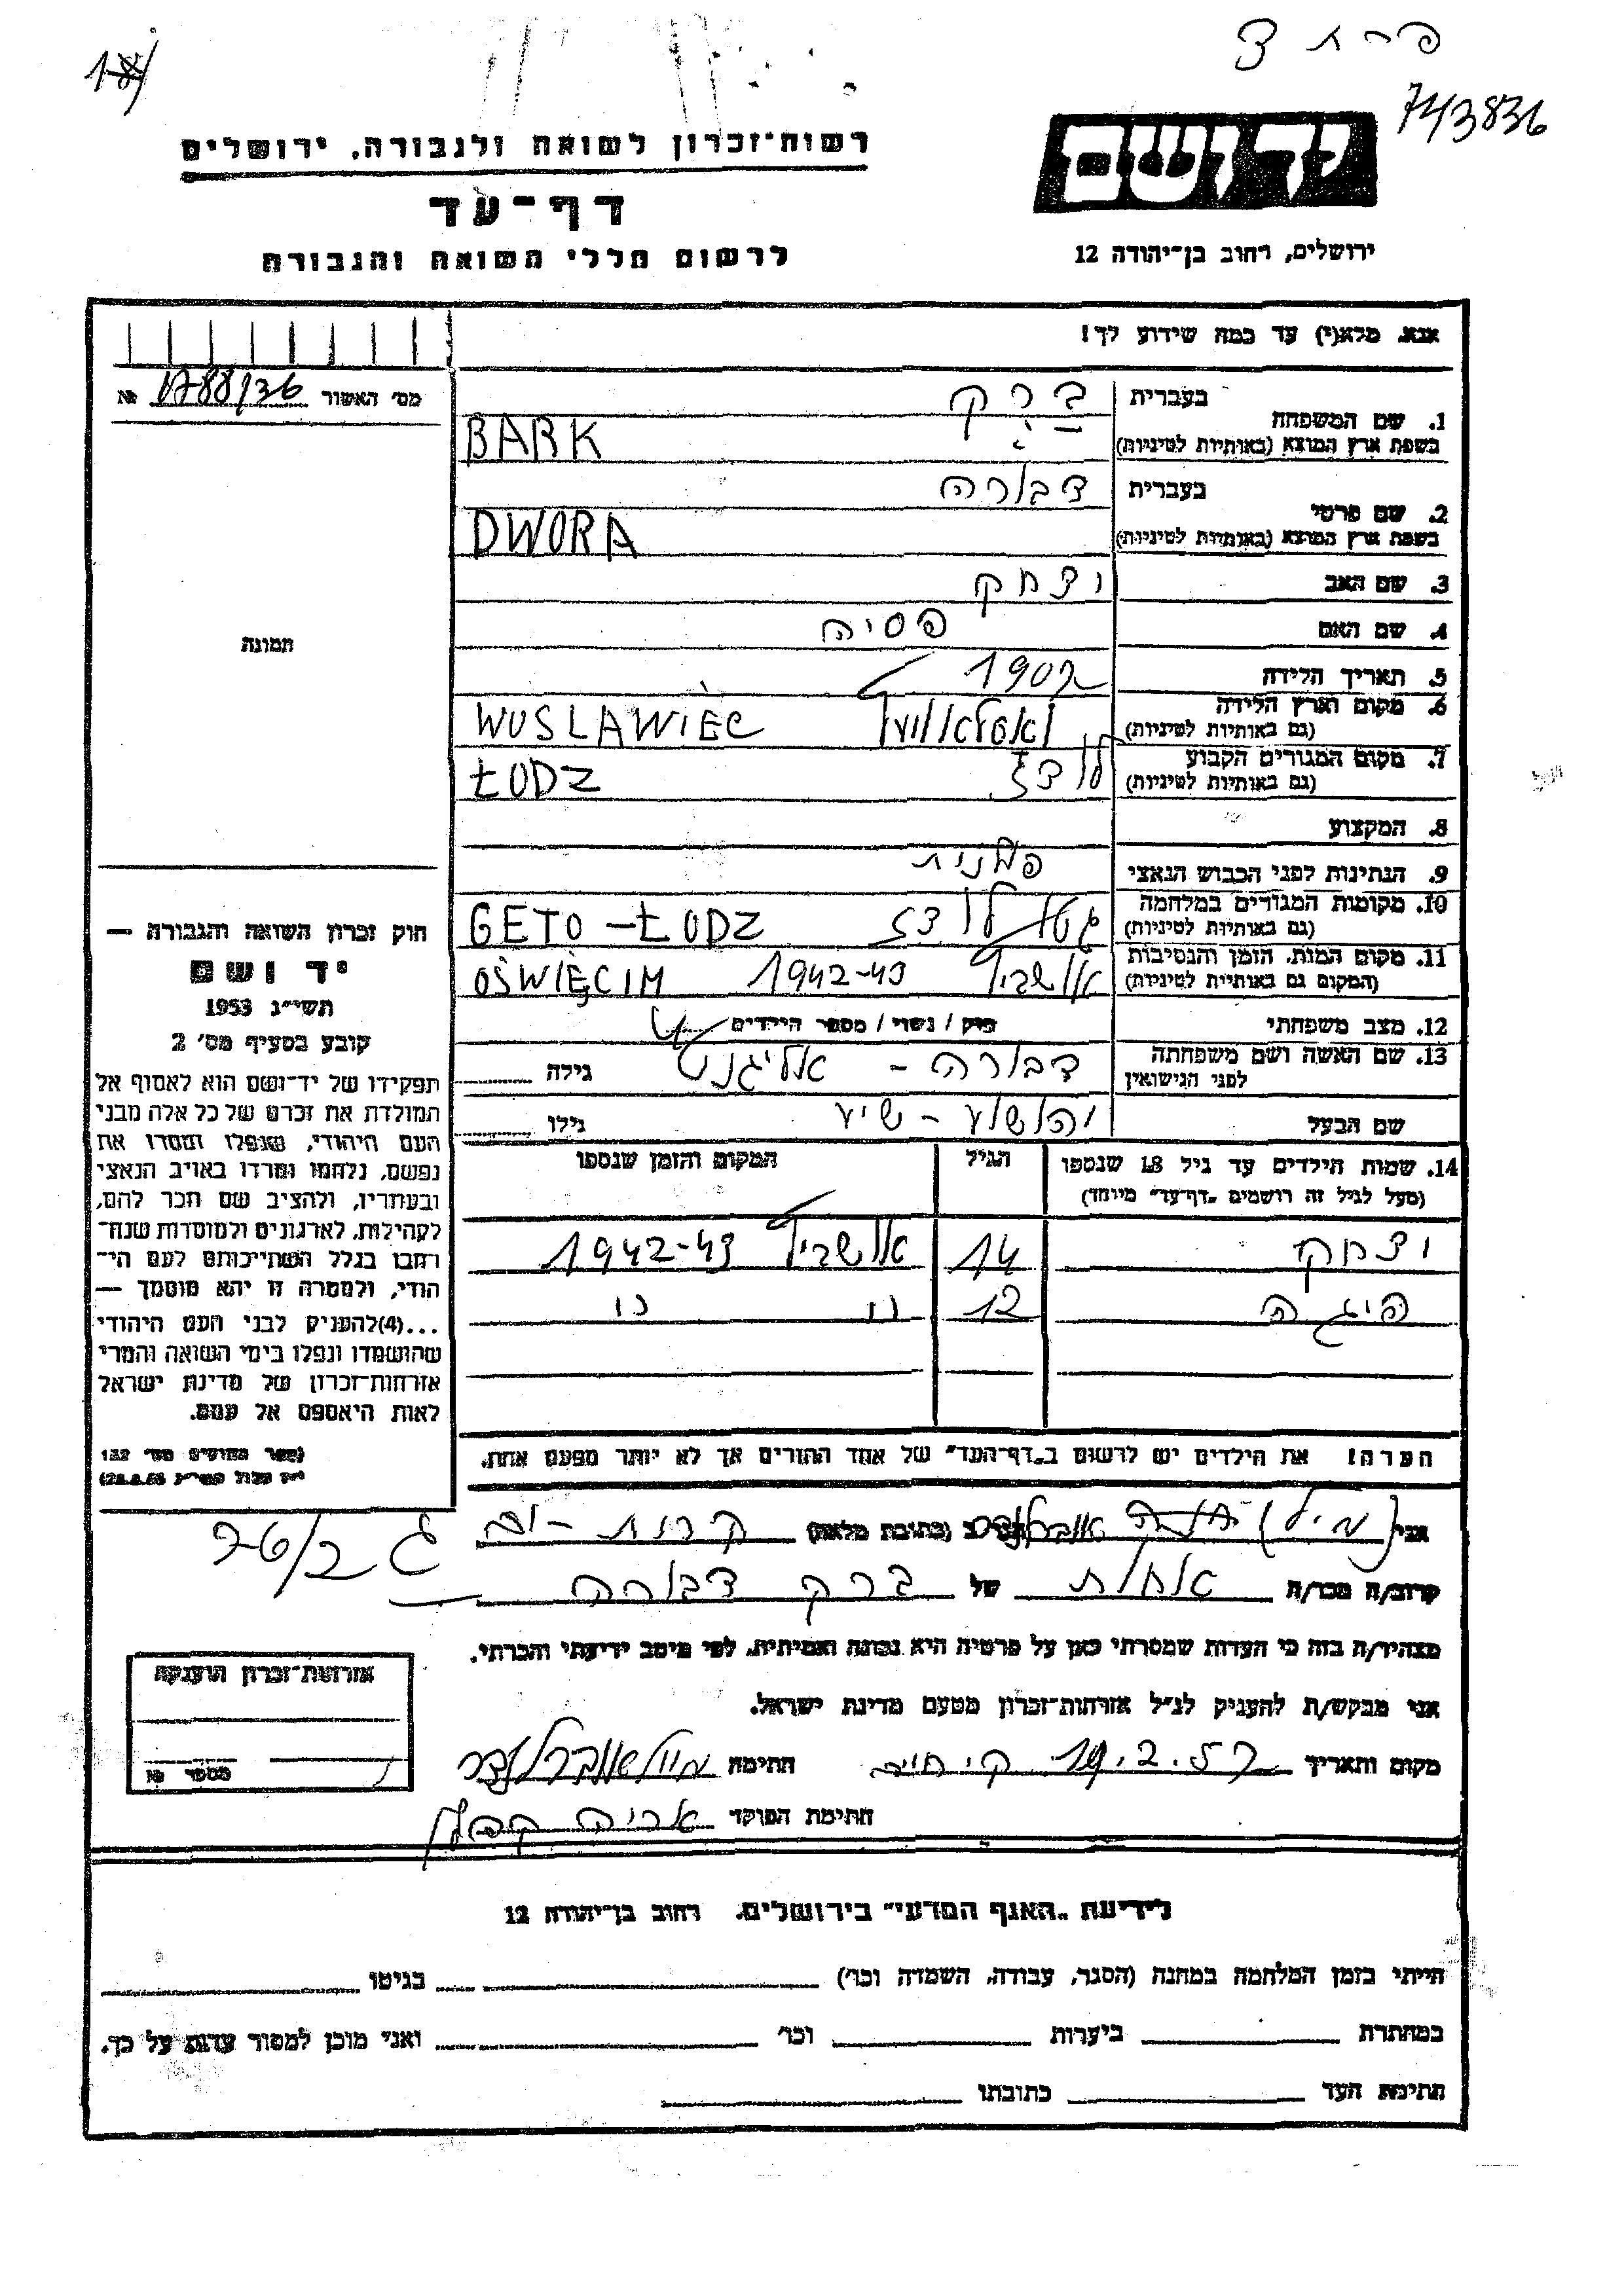 פרת ד
743836
רשות־זכרון לשואה ולגבורה, ירושלים
יד ושם
דף־עד
לרשום חללי השואה והגבורה
ירושלים, רחוב בן־יהודה 12
אנא, מלא(י) עד כמה שידוע לך!
מס' האשור №
1. שם המשפחה
בעברית ברק
בשפת ארץ המוצא (באותיות לטיניות) BARK
2. שם פרטי
בעברית דבורה
בשפת ארץ המוצא (באותיות לטיניות) DWORA
3. שם האב יצחק
4. שם האם פסיה
5. תאריך הלידה 1902
6. מקום וארץ הלידה
(גם באותיות לטיניות) WUSLAWIEC
7. מקום המגורים הקבוע
(גם באותיות לטיניות) לודז ŁODZ
8. המקצוע
9. הנתינות לפני הכבוש הנאצי פולנית
10. מקומות המגורים במלחמה
(גם באותיות לטיניות) גטו לודז GETO – ŁODZ
11. מקום המות, הזמן והנסיבות
(המקום גם באותיות לטיניות) אושביץ 1942-43 OŚWIĘCIM
12. מצב משפחתי רוק / נשוי / מספר הילדים
13. שם האשה ושם משפחתה
לפני הנישואין דבורה - אליגנט גילה
שם הבעל יהושע - שיע גילו
14. שמות הילדים עד גיל 18 שנספו הגיל המקום והזמן שנספו
(מעל לגיל זה רושמים "דף־עד" מיוחד)
יצחק 14 אושביץ 1942-43
פיגה 12 " "
הערה! את הילדים יש לרשום ב"דף־העד" של אחד ההורים אך לא יותר מפעם אחת.
תמונה
חוק זכרון השואה והגבורה —
יד ושם
תשי״ג 1953
קובע בסעיף מס׳ 2
תפקידו של יד־ושם הוא לאסוף אל
המולדת את זכרם של כל אלה מבני
העם היהודי, שנפלו ומסרו את
נפשם, נלחמו ומרדו באויב הנאצי
ובעוזריו, ולהציב שם וזכר להם,
לקהילות, לארגונים ולמוסדות שנח־
רבו בגלל השתייכותם לעם הי־
הודי, ולמטרה זו יהא מוסמך —
...(4)להעניק לבני העם היהודי
שהושמדו ונפלו בימי השואה והמרי
אזרחות־זכרון של מדינת ישראל
לאות היאספם אל עמם.
(ספר החוקים מס׳ 132
ג 26/2
אני
(כתובת מלאה)
קרוב/ה מכר/ה אחות של ברק דבורה
מצהיר/ה בזה כי העדות שמסרתי כאן על פרטיה היא נכונה ואמיתית, לפי מיטב ידיעתי והכרתי.
אני מבקש/ת להעניק לנ״ל אזרחות־זכרון מטעם מדינת ישראל.
מקום ותאריך 19.2.57 חתימה
חתימת הפוקד אריה
אזרחות־זכרון הוענקה
מספר №
לידיעת "האגף המדעי" בירושלים, רחוב בן־יהודה 12
הייתי בזמן המלחמה במחנה (הסגר, עבודה, השמדה וכו׳) בגיטו
במחתרת ביערות וכו׳ ואני מוכן למסור עדות על כך.
חתימת העד כתובתו